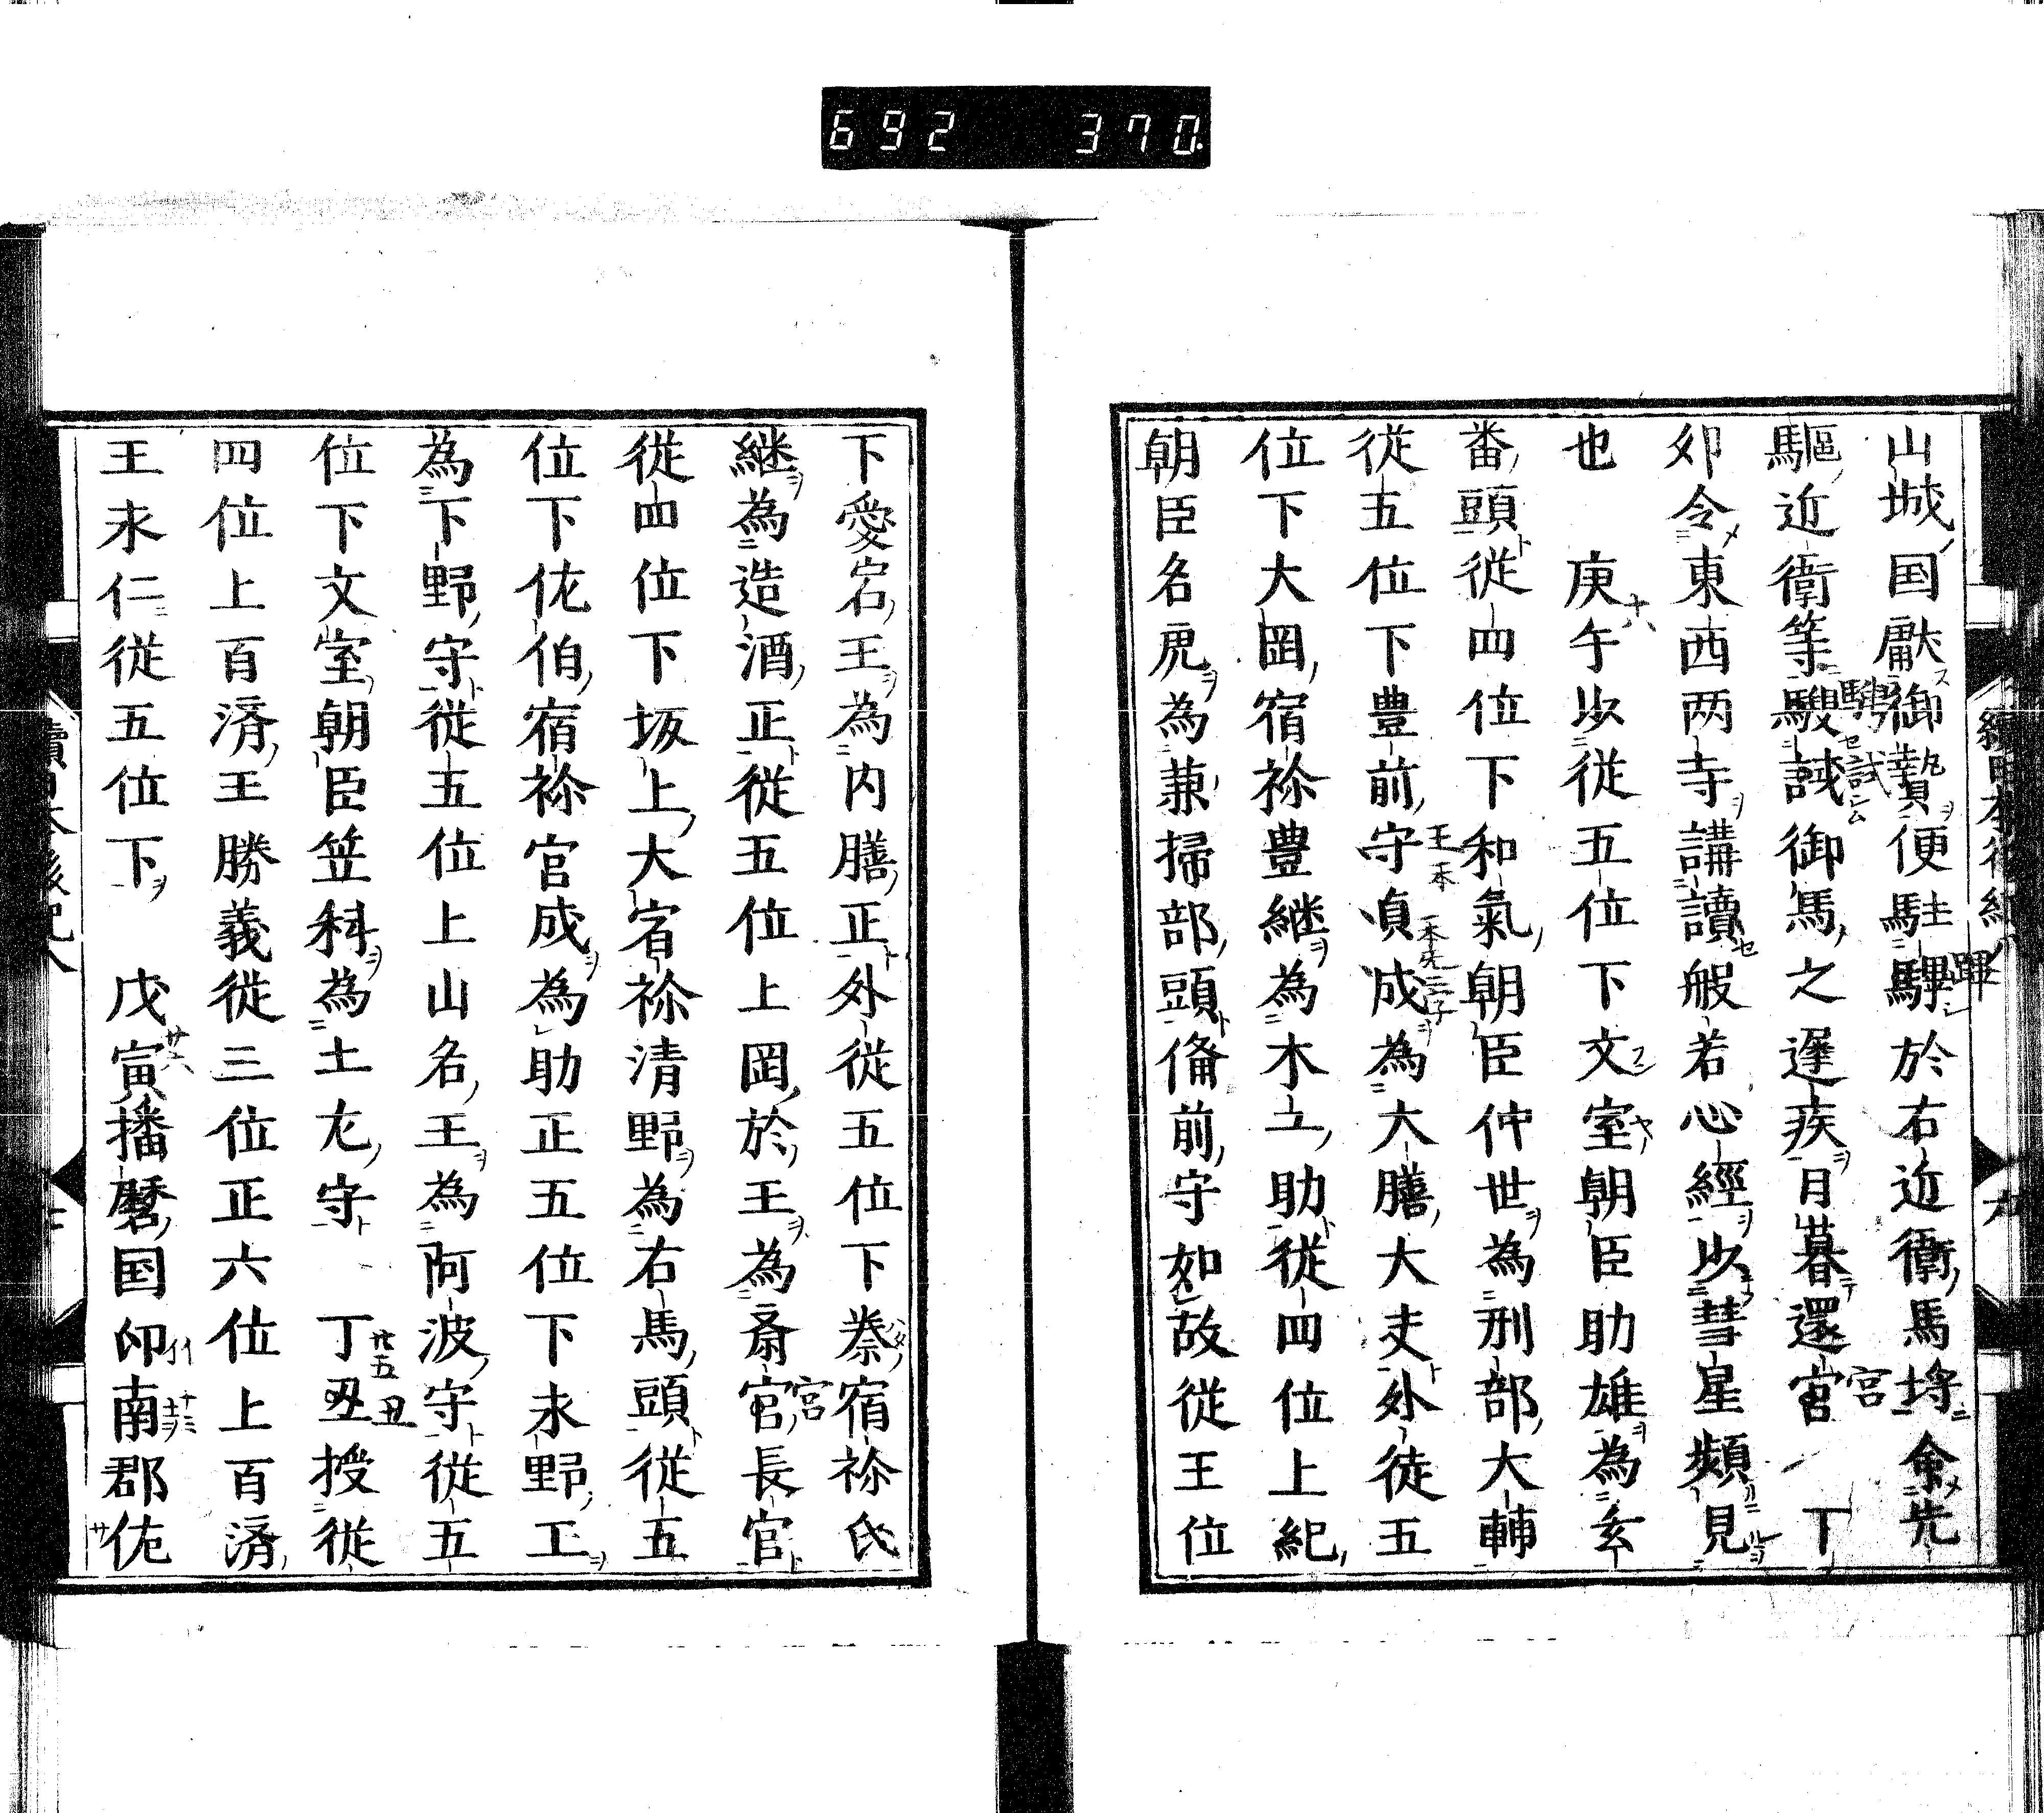 692 370
山城国献御贄便駐驆於右近衛馬埒命先
驅近衛等騪誡御馬之遲疾月暮還宮 丁
卯令東西两寺講讀般若心經以彗星頻見
也 庚午以從五位下文室朝臣助雄為玄
番頭從四位下和氣朝臣仲世為刑部大輔
從五位下豊前守貞成為大膳大夫外從五
位下大岡宿祢豊継為木工助從四位上紀
朝臣名虎為兼掃部頭俻前守如故從王位
下愛宕王為内膳正外從五位下秦宿祢氏
継為造酒正從五位上岡於王為斎官長官
從四位下坂上大宿祢清野為右馬頭從五
位下佐伯宿祢宮成為助正五位下永野王
為下野守從五位上山名王為阿波守從五
位下文室朝臣笠科為土左守 丁丑授從
四位上百濟王勝義從三位正六位上百濟
王永仁從五位下 戊寅播磨国印南郡佐